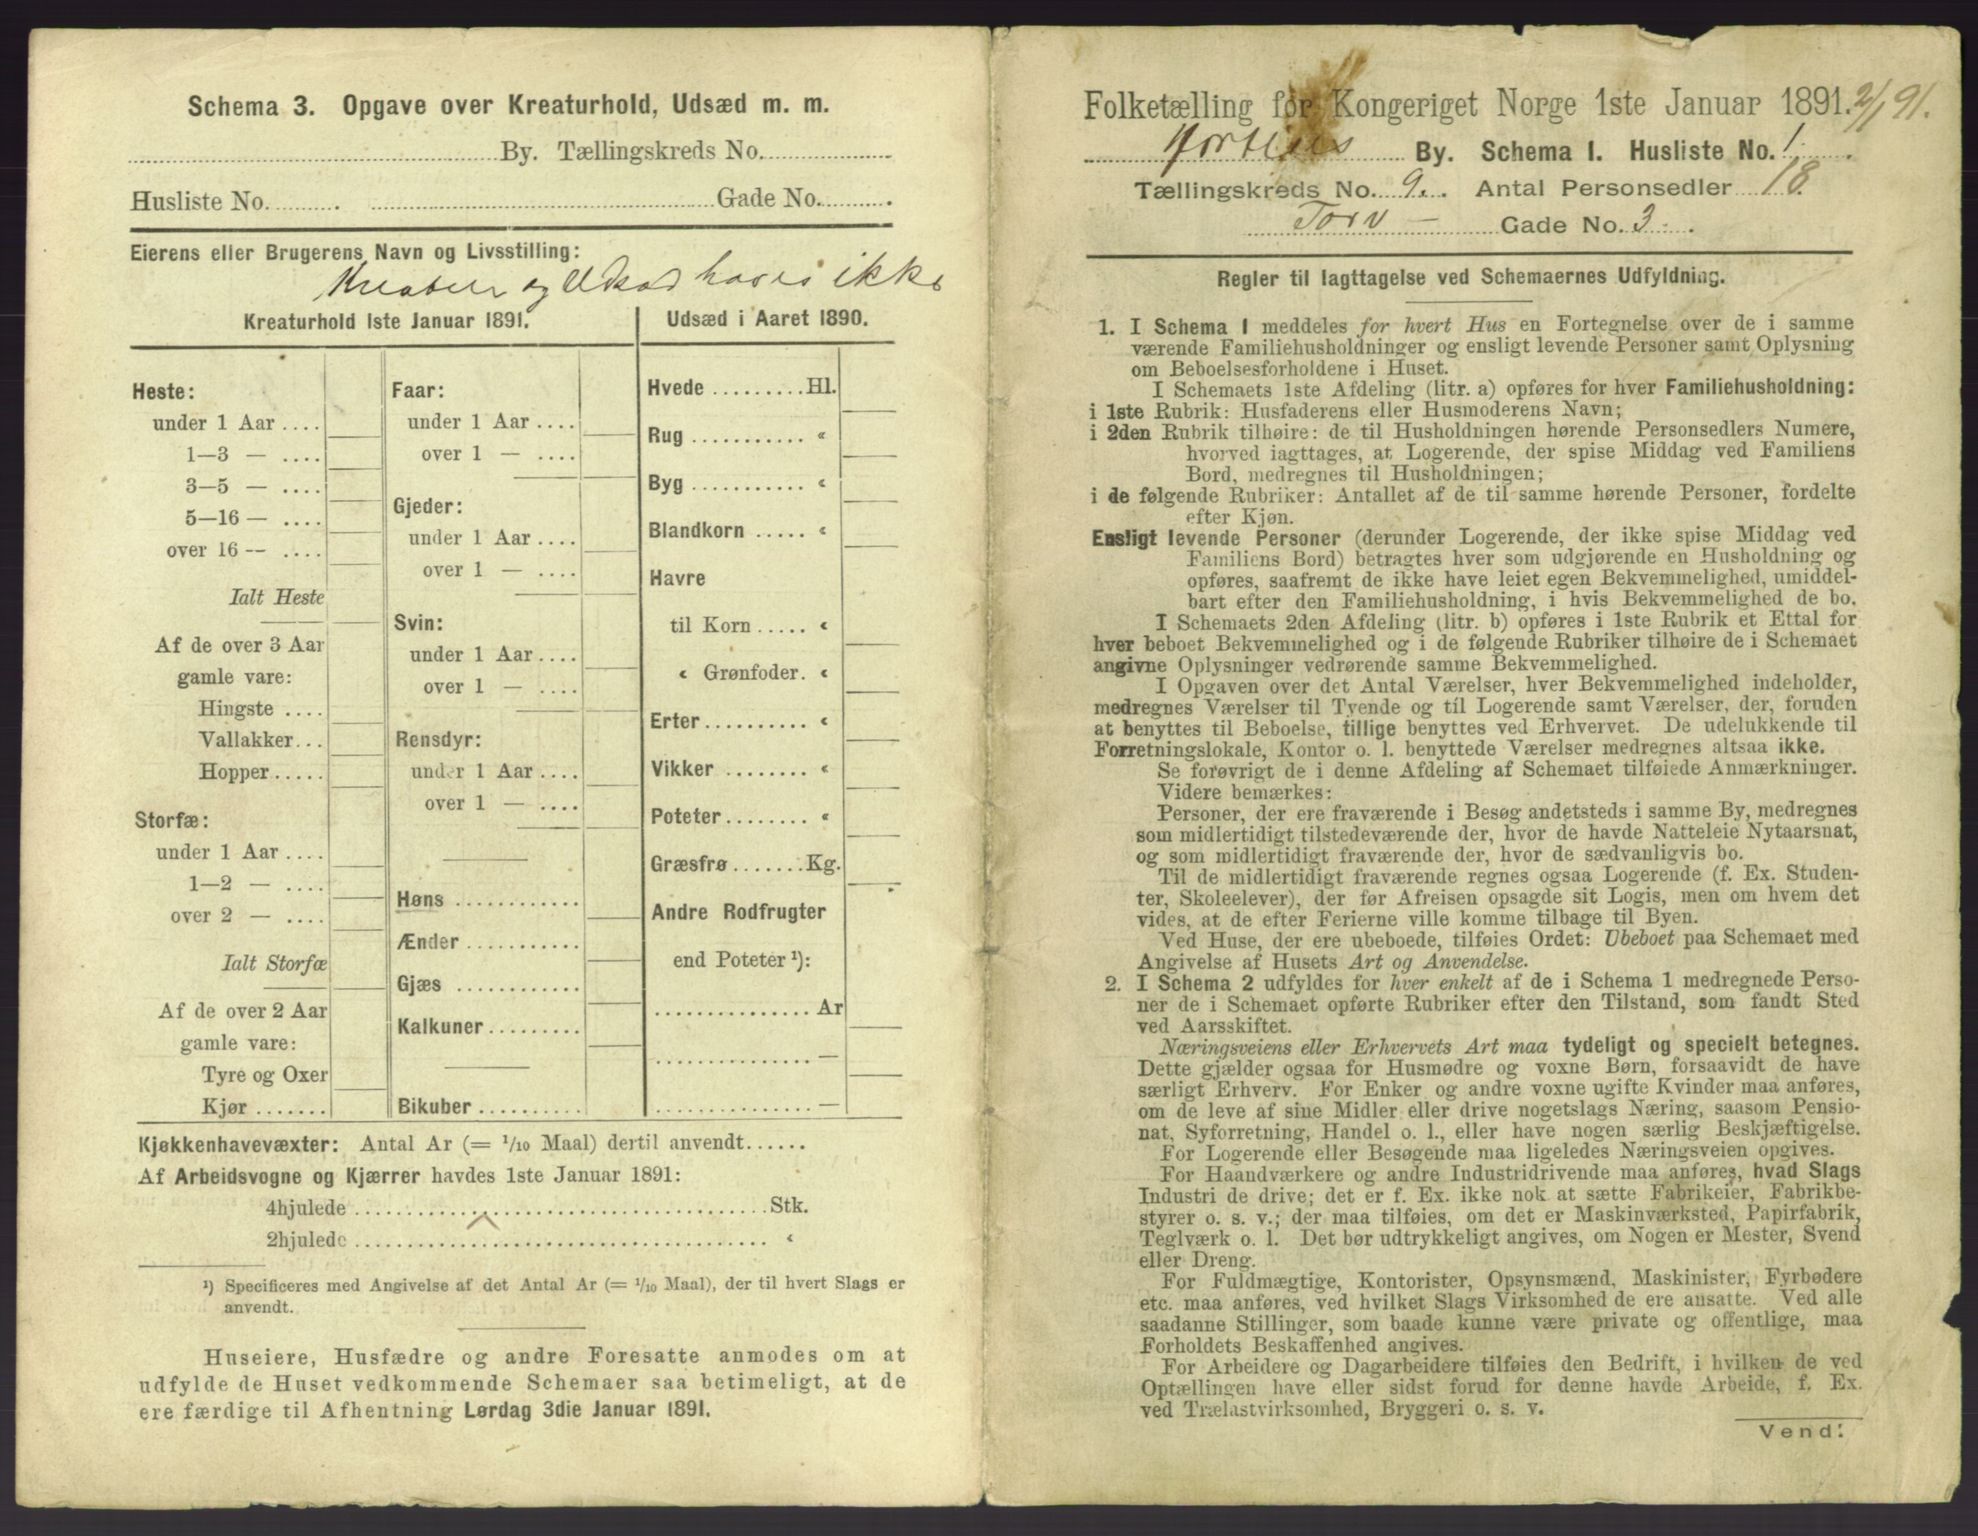 Schema 3. Opgave over Kreaturhold, Udsæd m. m.
By. Tællingskreds No.
Husliste No. Gade No.
Eierens eller Brugerens Navn og Livsstilling:
Kreature og Udsæd haves ikke
Kreaturhold 1ste Januar 1891.
Heste:
under 1 Aar ....
1—3 — ....
3—5 — ....
5—16 — ....
over 16 — ....
Ialt Heste
Af de over 3 Aar
gamle vare:
Hingste ....
Vallakker...
Hopper.....
Storfæ:
under 1 Aar ....
1—2 — ....
over 2 — ....
Ialt Storfæ
Af de over 2 Aar
gamle vare:
Tyre og Oxer
Kjør .......
Faar:
under 1 Aar ....
over 1 — ....
Gjeder:
under 1 Aar ....
over 1 — ....
Svin:
under 1 Aar ....
over 1 — ....
Rensdyr:
under 1 Aar ....
over 1 — ....
Høns ............
Ænder ...........
Gjæs ............
Kalkuner .........
Bikuber ..........
Udsæd i Aaret 1890.
Hvede ......... Hl.
Rug ........... «
Byg ........... «
Blandkorn ..... «
Havre
til Korn ..... «
« Grønfoder. «
Erter.......... «
Vikker ........ «
Poteter ........ «
Græsfrø ....... Kg.
Andre Rodfrugter
end Poteter ¹):
............... Ar
............... —
............... —
Kjøkkenhavevæxter: Antal Ar (= 1/10 Maal) dertil anvendt......
Af Arbeidsvogne og Kjærrer havdes 1ste Januar 1891:
4hjulede ..................................... Stk.
2hjulede ..................................... «
¹) Specificeres med Angivelse af det Antal Ar (= 1/10 Maal), der til hvert Slags er
anvendt.
Huseiere, Husfædre og andre Foresatte anmodes om at
udfylde de Huset vedkommende Schemaer saa betimeligt, at de
ere færdige til Afhentning Lørdag 3die Januar 1891.
Folketælling for Kongeriget Norge 1ste Januar 1891. 2/1 91.
Hortens By. Schema I. Husliste No. 1
Tællingskreds No. 9. Antal Personsedler 18
Torv — Gade No. 3
Regler til Iagttagelse ved Schemaernes Udfyldning.
1. I Schema 1 meddeles for hvert Hus en Fortegnelse over de i samme
værende Familiehusholdninger og ensligt levende Personer samt Oplysning
om Beboelsesforholdene i Huset.
I Schemaets 1ste Afdeling (litr. a) opføres for hver Familiehusholdning:
i 1ste Rubrik: Husfaderens eller Husmoderens Navn;
i 2den Rubrik tilhøire: de til Husholdningen hørende Personsedlers Numere,
hvorved iagttages, at Logerende, der spise Middag ved Familiens
Bord, medregnes til Husholdningen;
i de følgende Rubriker: Antallet af de til samme hørende Personer, fordelte
efter Kjøn.
Ensligt levende Personer (derunder Logerende, der ikke spise Middag ved
Familiens Bord) betragtes hver som udgjørende en Husholdning og
opføres, saafremt de ikke have leiet egen Bekvemmelighed, umiddel-
bart efter den Familiehusholdning, i hvis Bekvemmelighed de bo.
I Schemaets 2den Afdeling (litr. b) opføres i 1ste Rubrik et Ettal for
hver beboet Bekvemmelighed og i de følgende Rubriker tilhøire de i Schemaet
angivne Oplysninger vedrørende samme Bekvemmelighed.
I Opgaven over det Antal Værelser, hver Bekvemmelighed indeholder,
medregnes Værelser til Tyende og til Logerende samt Værelser, der, foruden
at benyttes til Beboelse, tillige benyttes ved Erhvervet. De udelukkende til
Forretningslokale, Kontor o. l. benyttede Værelser medregnes altsaa ikke.
Se forøvrigt de i denne Afdeling af Schemaet tilføiede Anmærkninger.
Videre bemærkes:
Personer, der ere fraværende i Besøg andetsteds i samme By, medregnes
som midlertidigt tilstedeværende der, hvor de havde Natteleie Nytaarsnat,
og som midlertidigt fraværende der, hvor de sædvanligvis bo.
Til de midlertidigt fraværende regnes ogsaa Logerende (f. Ex. Studen-
ter, Skoleelever), der før Afreisen opsagde sit Logis, men om hvem det
vides, at de efter Ferierne ville komme tilbage til Byen.
Ved Huse, der ere ubeboede, tilføies Ordet: Ubeboet paa Schemaet med
Angivelse af Husets Art og Anvendelse.
2. I Schema 2 udfyldes for hver enkelt af de i Schema 1 medregnede Perso-
ner de i Schemaet opførte Rubriker efter den Tilstand, som fandt Sted
ved Aarsskiftet.
Næringsveiens eller Erhvervets Art maa tydeligt og specielt betegnes.
Dette gjælder ogsaa for Husmødre og voxne Børn, forsaavidt de have
særligt Erhverv. For Enker og andre voxne ugifte Kvinder maa anføres,
om de leve af sine Midler eller drive nogetslags Næring, saasom Pensio-
nat, Syforretning, Handel o. l., eller have nogen særlig Beskjæftigelse.
For Logerende eller Besøgende maa ligeledes Næringsveien opgives.
For Haandværkere og andre Industridrivende maa anføres, hvad Slags
Industri de drive; det er f. Ex. ikke nok at sætte Fabrikeier, Fabrikbe-
styrer o. s. v.; der maa tilføies, om det er Maskinværksted, Papirfabrik,
Teglværk o. l. Det bør udtrykkeligt angives, om Nogen er Mester, Svend
eller Dreng.
For Fuldmægtige, Kontorister, Opsynsmænd, Maskinister, Fyrbødere
etc. maa anføres, ved hvilket Slags Virksomhed de ere ansatte. Ved alle
saadanne Stillinger, som baade kunne være private og offentlige, maa
Forholdets Beskaffenhed angives.
For Arbeidere og Dagarbeidere tilføies den Bedrift, i hvilken de ved
Optællingen have eller sidst forud for denne havde Arbeide, f. Ex.
ved Trælastvirksomhed, Bryggeri o. s. v.
Vend!